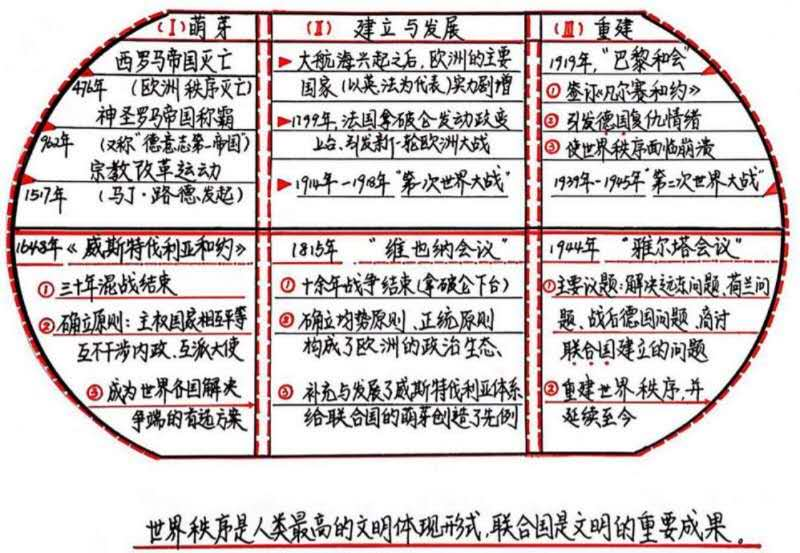 (Ⅰ)萌芽
西罗马帝国灭亡
476年 (欧洲秩序灭亡)
神圣罗马帝国称霸
962年 (又称“德意志第一帝国”)
宗教改革运动
1517年 (马丁·路德发起)
1648年《威斯特伐利亚和约》
① 三十年混战结束
② 确立原则:主权国家相互平等
互不干涉内政、互派大使
③ 成为世界各国解决
争端的首选方案
(Ⅱ) 建立与发展
大航海兴起之后,欧洲的主要
国家(以英、法为代表)实力剧增
1799年,法国拿破仑发动政变
上台、引发新一轮欧洲大战
1914年-1918年“第一次世界大战”
1815年 “维也纳会议”
① 十余年战争结束(拿破仑下台)
② 确立均势原则、正统原则
构成了欧洲的政治生态、
③ 补充与发展了威斯特伐利亚体系
给联合国的萌芽创造了先例
(Ⅲ)重建
1919年,“巴黎和会”
① 签订《凡尔赛和约》
② 引发德国复仇情绪
③ 使世界秩序面临崩溃
1939年-1945年“第二次世界大战”
1944年 “雅尔塔会议”
① 主要议题:解决远东问题、荷兰问
题、战后德国问题、商讨
联合国建立的问题
② 重建世界秩序,并
延续至今
世界秩序是人类最高的文明体现形式,联合国是文明的重要成果。